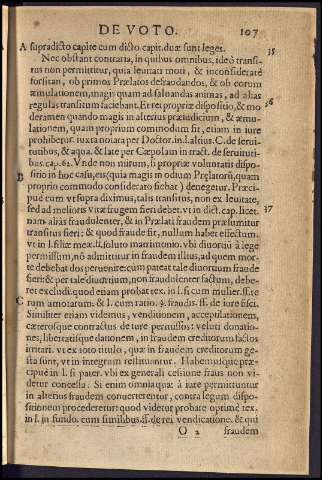 DE VOTO. 107
A supradicto capite cum dicto capit. duæ sunt leges.
Nec obstant contraria, in quibus omnibus, ideò transi- 35
tus non permittitur, quia leuitati moti, & inconsideratè
forsitan, ob primos Prælatos defraudandos, & ob eorum
æmulationem, magis quam ad saluandas animas, ad alias
regulas transitum faciebant. Et rei propriæ dispositio, & mo 36
deramen quando magis in alterius præiudicium, & æmu-
lationem, quam proprium commodum fit, etiam in iure
prohibetur. iuxta notata per Doctor. in l. altius. C. de serui-
tutibus, & aqua. & late per Cæpolam in tract. de seruituti-
bus. cap. 62. Vnde non mirum, si propriæ voluntatis dispo-
B sitio in hoc casu, eis (quia magis in odium Prælatorũ, quam
proprio commodo considerato fiebat) denegetur. Præci-
puè cum vt supra diximus, talis transitus, non ex leuitate,
sed ad melioris vitæ frugem fieri debet. vt in dict. cap. licet. 37
nam aliàs fraudulenter, & in Prælati fraudem præsumitur
transitus fieri: & quod fraude fit, nullum habet effectum.
vt in l. filiæ meæ. ff. soluto matrimonio. vbi diuortiũ à lege
permissum, nõ admittitur in fraudem illius, ad quem mor-
te debebat dos peruenire: cum pateat tale diuortium fraude
fieri: & per tale diuortium, non fraudulenter factum, debe-
ret excludi: quod etiam probat tex. in l. si cum mulier. ff. re
C rum amotarum. & l. cum ratio. §. fraudis. ff. de iure fisci.
Similiter etiam videmus, venditionem, acceptilationem,
cæterosque contractus de iure permissos: veluti donatio-
nes, libertatisque dationem, in fraudem creditorum factos
irritari. vt ex toto titulo, quæ in fraudem creditorum ge-
sta sunt, vt in integrum restituantur. Habemusque præ-
cipuè in l. si pater. vbi ex generali cessione fraus non vi-
detur concessa. Si enim omnia quæ à iure permittuntur
in alterius fraudem conuerterentur, contra legum dispo-
sitionem procederetur: quod videtur probare optimè tex.
in l. in fundo. cum similibus. ff. de rei vendicatione. & qui
O 2 fraudem